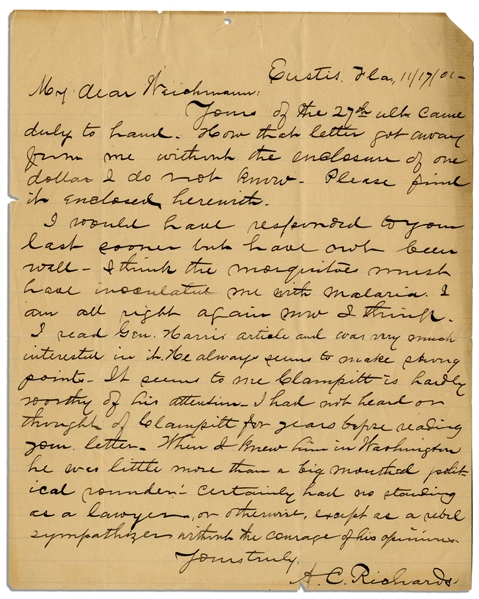 Eustis, Fla, 11/17/01-
My dear Weichmann:
Yours of the 27th ult. came
duly to hand. How that letter got away
from me without the enclosure of one
dollar I do not know. Please find
it enclosed herewith.
I would have responded to your
last sooner but have not been
well - I think the mosquitoes must
have inoculated me with malaria. I
am all right again now I think.
I read Gen. Harris article and was very much
interested in it. He always seems to make strong
points - It seems to me Clampitt is hardly
worthy of his attention - I had not heard or
thought of Clampitt for years before reading
your letter - When I knew him in Washington
he was little more than a big mouthed polit-
ical rounder - certainly had no standing
as a lawyer, or otherwise, except as a rebel
sympathizer without the courage of his opinions.
Yours truly,
A. C. Richards-